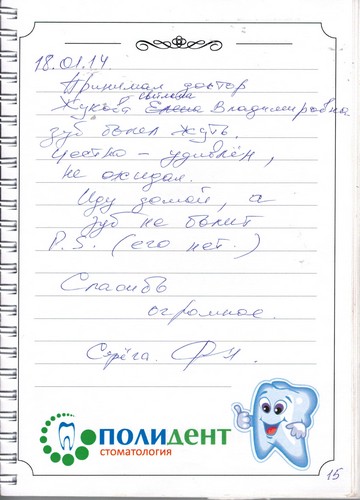 18.01.14
Принимал доктор
Светлана
Жукова Елена Владимировна
зуб болел жуть.
Честно - удивлён,
не ожидал.
Иду домой, а
зуб не болит
P.S. (его нет.)
Спасибо
огромное.
Серёга.
ПОЛИДЕНТ
СТОМАТОЛОГИЯ
15